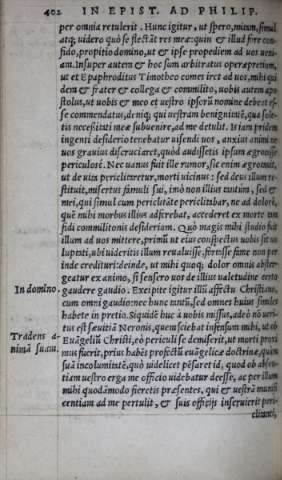 402 IN EPIST. AD PHILIP.
per omnia retulerit. Hunc igitur, ut spero, mittam, simul
atq; uidero quò se flectāt res meæ: quin & illud firme con-
fido, propitio domino, ut & ipse propediem ad uos ueni-
am. Insuper autem & hoc sum arbitratus operæpretium,
ut et Epaphroditus Timotheo comes iret ad uos, mihi qui
dem & frater & collega & commilito, uobis autem apo
stolus, ut uobis & meo et uestro ipsorū nomine debeat es-
se commendatus, deniq; qui uestram benignitatē, qua sole-
tis necessitati meæ subuenire, ad me detulit. Is iam pridem
ingenti desiderio tenebatur uisendi uos, anxius animi ne
uos grauius discruciaret, quòd audissetis ipsum ægrotasse
periculosè. Nec uanus fuit ille rumor, sic enim ægrotauit,
ut de uita periclitaretur, morti uicinus: sed deus illum re-
stituit, misertus simul sui, imò non illius tantùm, sed &
mei, qui simul cum periclitāte periclitabar, ne ad dolorē,
quē mihi morbus illius adferebat, accederet ex morte tam
fidi commilitonis desiderium. Quò magis mihi studio fuit
illum ad uos mittere, primū ut eius conspectus uobis sit uo
luptati, ubi uideritis illum reualuisse, forteßse fame non per
inde credituri: deinde, ut mihi quoq; dolor omnis abster-
geatur ex animo, si sensero uos de illius ualetudine certo
In domino. gaudere gaudio. Excipite igitur illū affectu Christiano,
cum omni gaudio: nec hunc tantū, sed omnes huius similes
habete in pretio. Siquidē huc à uobis missus, adeò nō ueri-
tus est sæuitiā Neronis, quem sciebat infensum mihi, ut ob
Tradens a-
nimā suam. Euāgeliū Christi, eò periculi se demiserit, ut morti proxi
mus fuerit, prius habēs profectū euāgelicæ doctrinæ, quàm
suā incolumitatē, quò uidelicet pēsaret id, quod ob absen-
tiam uestro erga me officio uidebatur deesse, ac per illum
mihi quodāmodo fieretis præsentes, qui & uestrā munifi
centiam ad me pertulit, & suis officijs inseruierit peri-
clitanti,